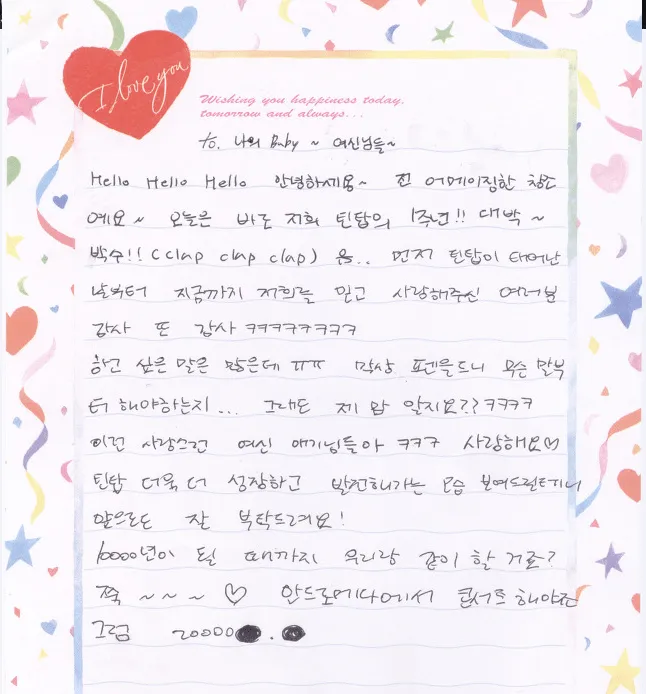 I love you
Wishing you happiness today.
tomorrow and always...
to. 나의 Baby ~ 여신님들~
Hello Hello Hello 안녕하세용~ 전 어메이징한 창조
예요~ 오늘은 바로 저희 틴탑의 1주년!! 대박~
박수!! (clap clap clap) 음.. 먼저 틴탑이 태어난
날부터 지금까지 저희를 믿고 사랑해주신 여러분
감사 또 감사 ㅋㅋㅋㅋㅋㅋㅋㅋ
하고 싶은 말은 많은데 ㅠㅠ 막상 펜을드니 무슨 말부
터 해야하는지... 그래도 제 맘 알지요?? ㅋㅋㅋㅋ
이런 사랑스런 여신 애기님들아 ㅋㅋㅋ 사랑해요♡
틴탑 더욱 더 성장하고 발전해가는 모습 보여드릴테니
앞으로도 잘 부탁드려요!
10000년이 될 때까지 우리랑 같이 할 거죠?
쭉 ~ ~ ~ ♡ 안드로메다에서 콘서트 해야죠
그럼 20000